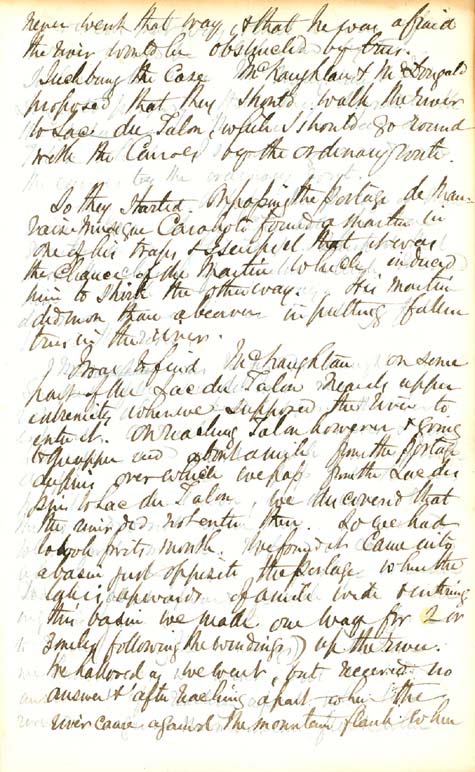 never went that way, & that he was afraid
the river would be obstructed by trees.
Such being the Case McNaughtan & McDougald
proposed that they should walk the river
to Lac du Talon, while I should go round
with the Canoes by the ordinary route.
So they started. On passing the Portage de Mau-
vaise Musique Canaboto found a martin in
one of his traps, & I suspect that it was
the Chance of the Martin which induced
him to shirk the other way. His martin
did more than a beaver in putting fallen
trees in the river.
I was to find McNaughtan on some
part of the Lac du Talon near its upper
extremity where we supposed the river to
enter it. On reaching Talon however & going
to the upper end about a mile from the Portage
des pins over which we pass from the Lac des
pins to Lac du Talon, we discovered that
the river did not enter there. So we had
to look for its mouth. We found it came into
a basin just opposite the Portage where the
lake is upwards of a mile wide & entering
this basin we made our way for 2 or
3 miles (following the windings) up the river.
We hallooed as we went, but received no
answer & after reaching a part where the
river came against the mountain flank when